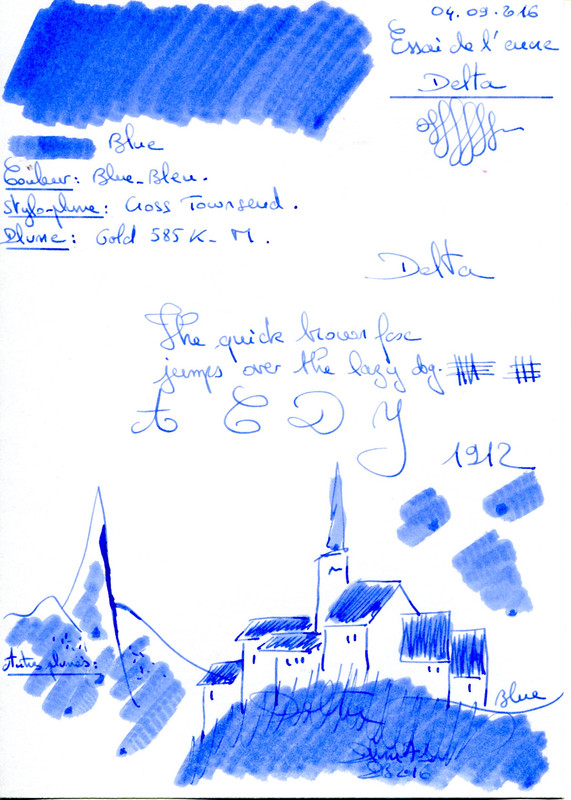 04.09.2016
Essai de l'encre
Delta
Blue
Couleur: Blue-Bleu.
Stylo-plume: Cross Townsend.
Plume: Gold 585 K- M.
Delta
The quick brown fox
jumps over the lazy dog.
A C D Y
1912
Autres plumes:
Blue
Delta
2016